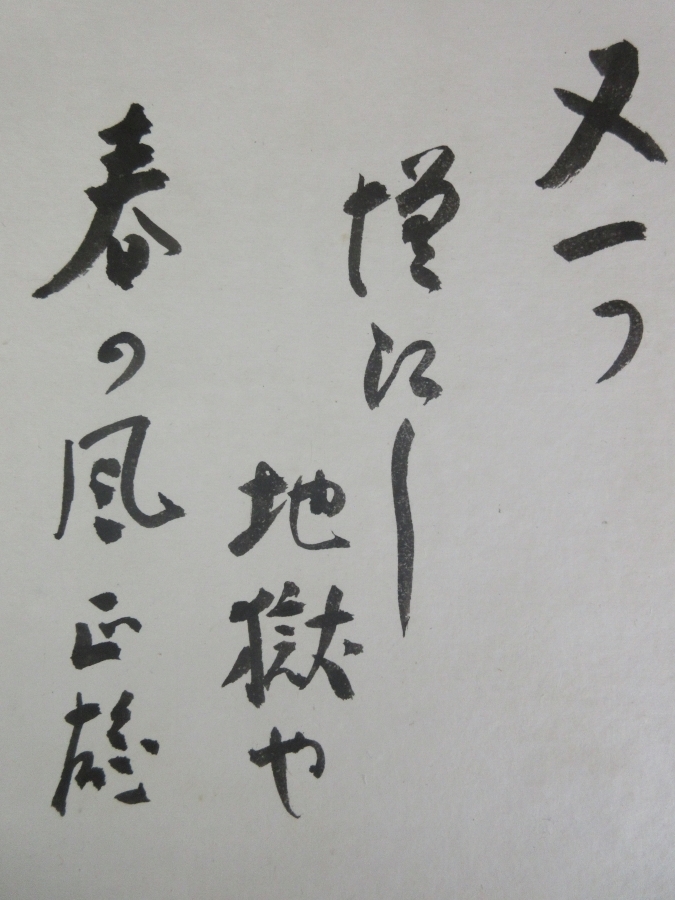 又一つ
増江し
地獄や
春の風 正雄